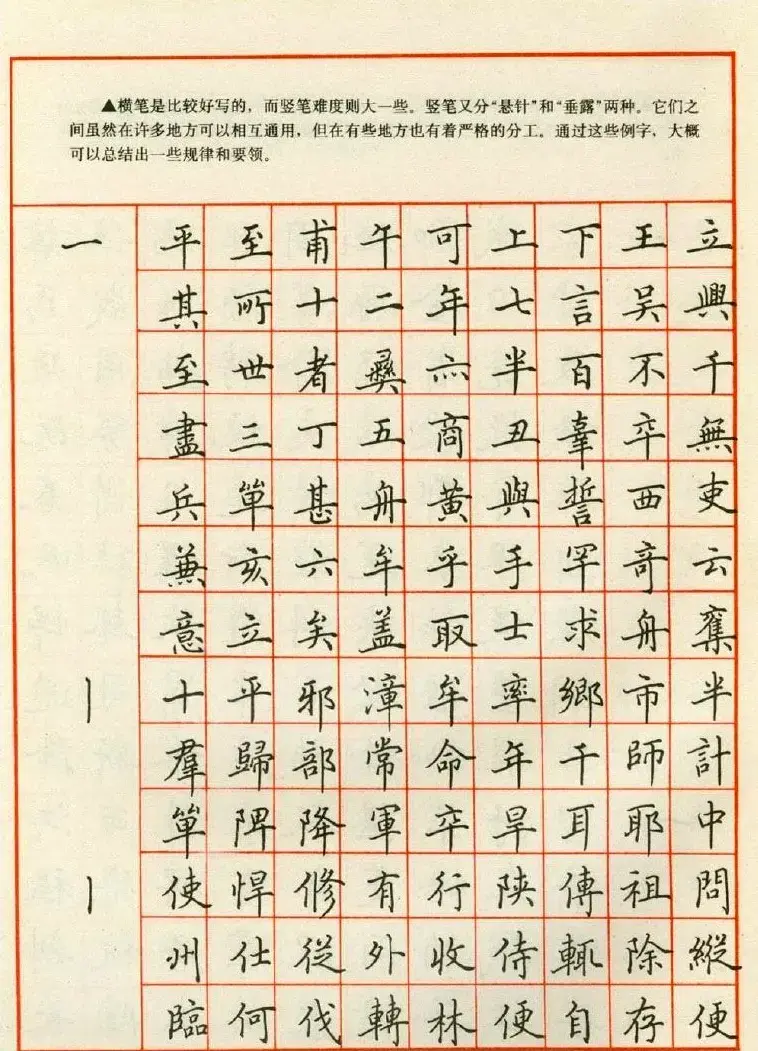 ▲横笔是比较好写的，而竖笔难度则大一些。竖笔又分“悬针”和“垂露”两种。它们之
间虽然在许多地方可以相互通用，但在有些地方也有着严格的分工。通过这些例字，大概
可以总结出一些规律和要领。
一 平 至 甫 午 可 上 下 王 立
其 所 十 二 年 七 言 吴 興
至 世 者 彝 六 半 百 不 千
盡 三 丁 五 商 丑 辜 卒 無
兵 單 甚 舟 黄 與 誓 西 吏
兼 亥 六 牟 乎 手 罕 奇 云
意 立 矣 盖 取 士 求 舟 奪
丨 十 平 邪 漳 牟 率 鄉 市 半
羣 歸 部 常 命 年 千 師 計
單 陴 降 軍 卒 旱 耳 耶 中
丨 使 悍 修 有 行 陕 傳 祖 問
州 仕 從 外 收 侍 輒 除 縱
臨 何 伐 轉 林 便 自 存 便